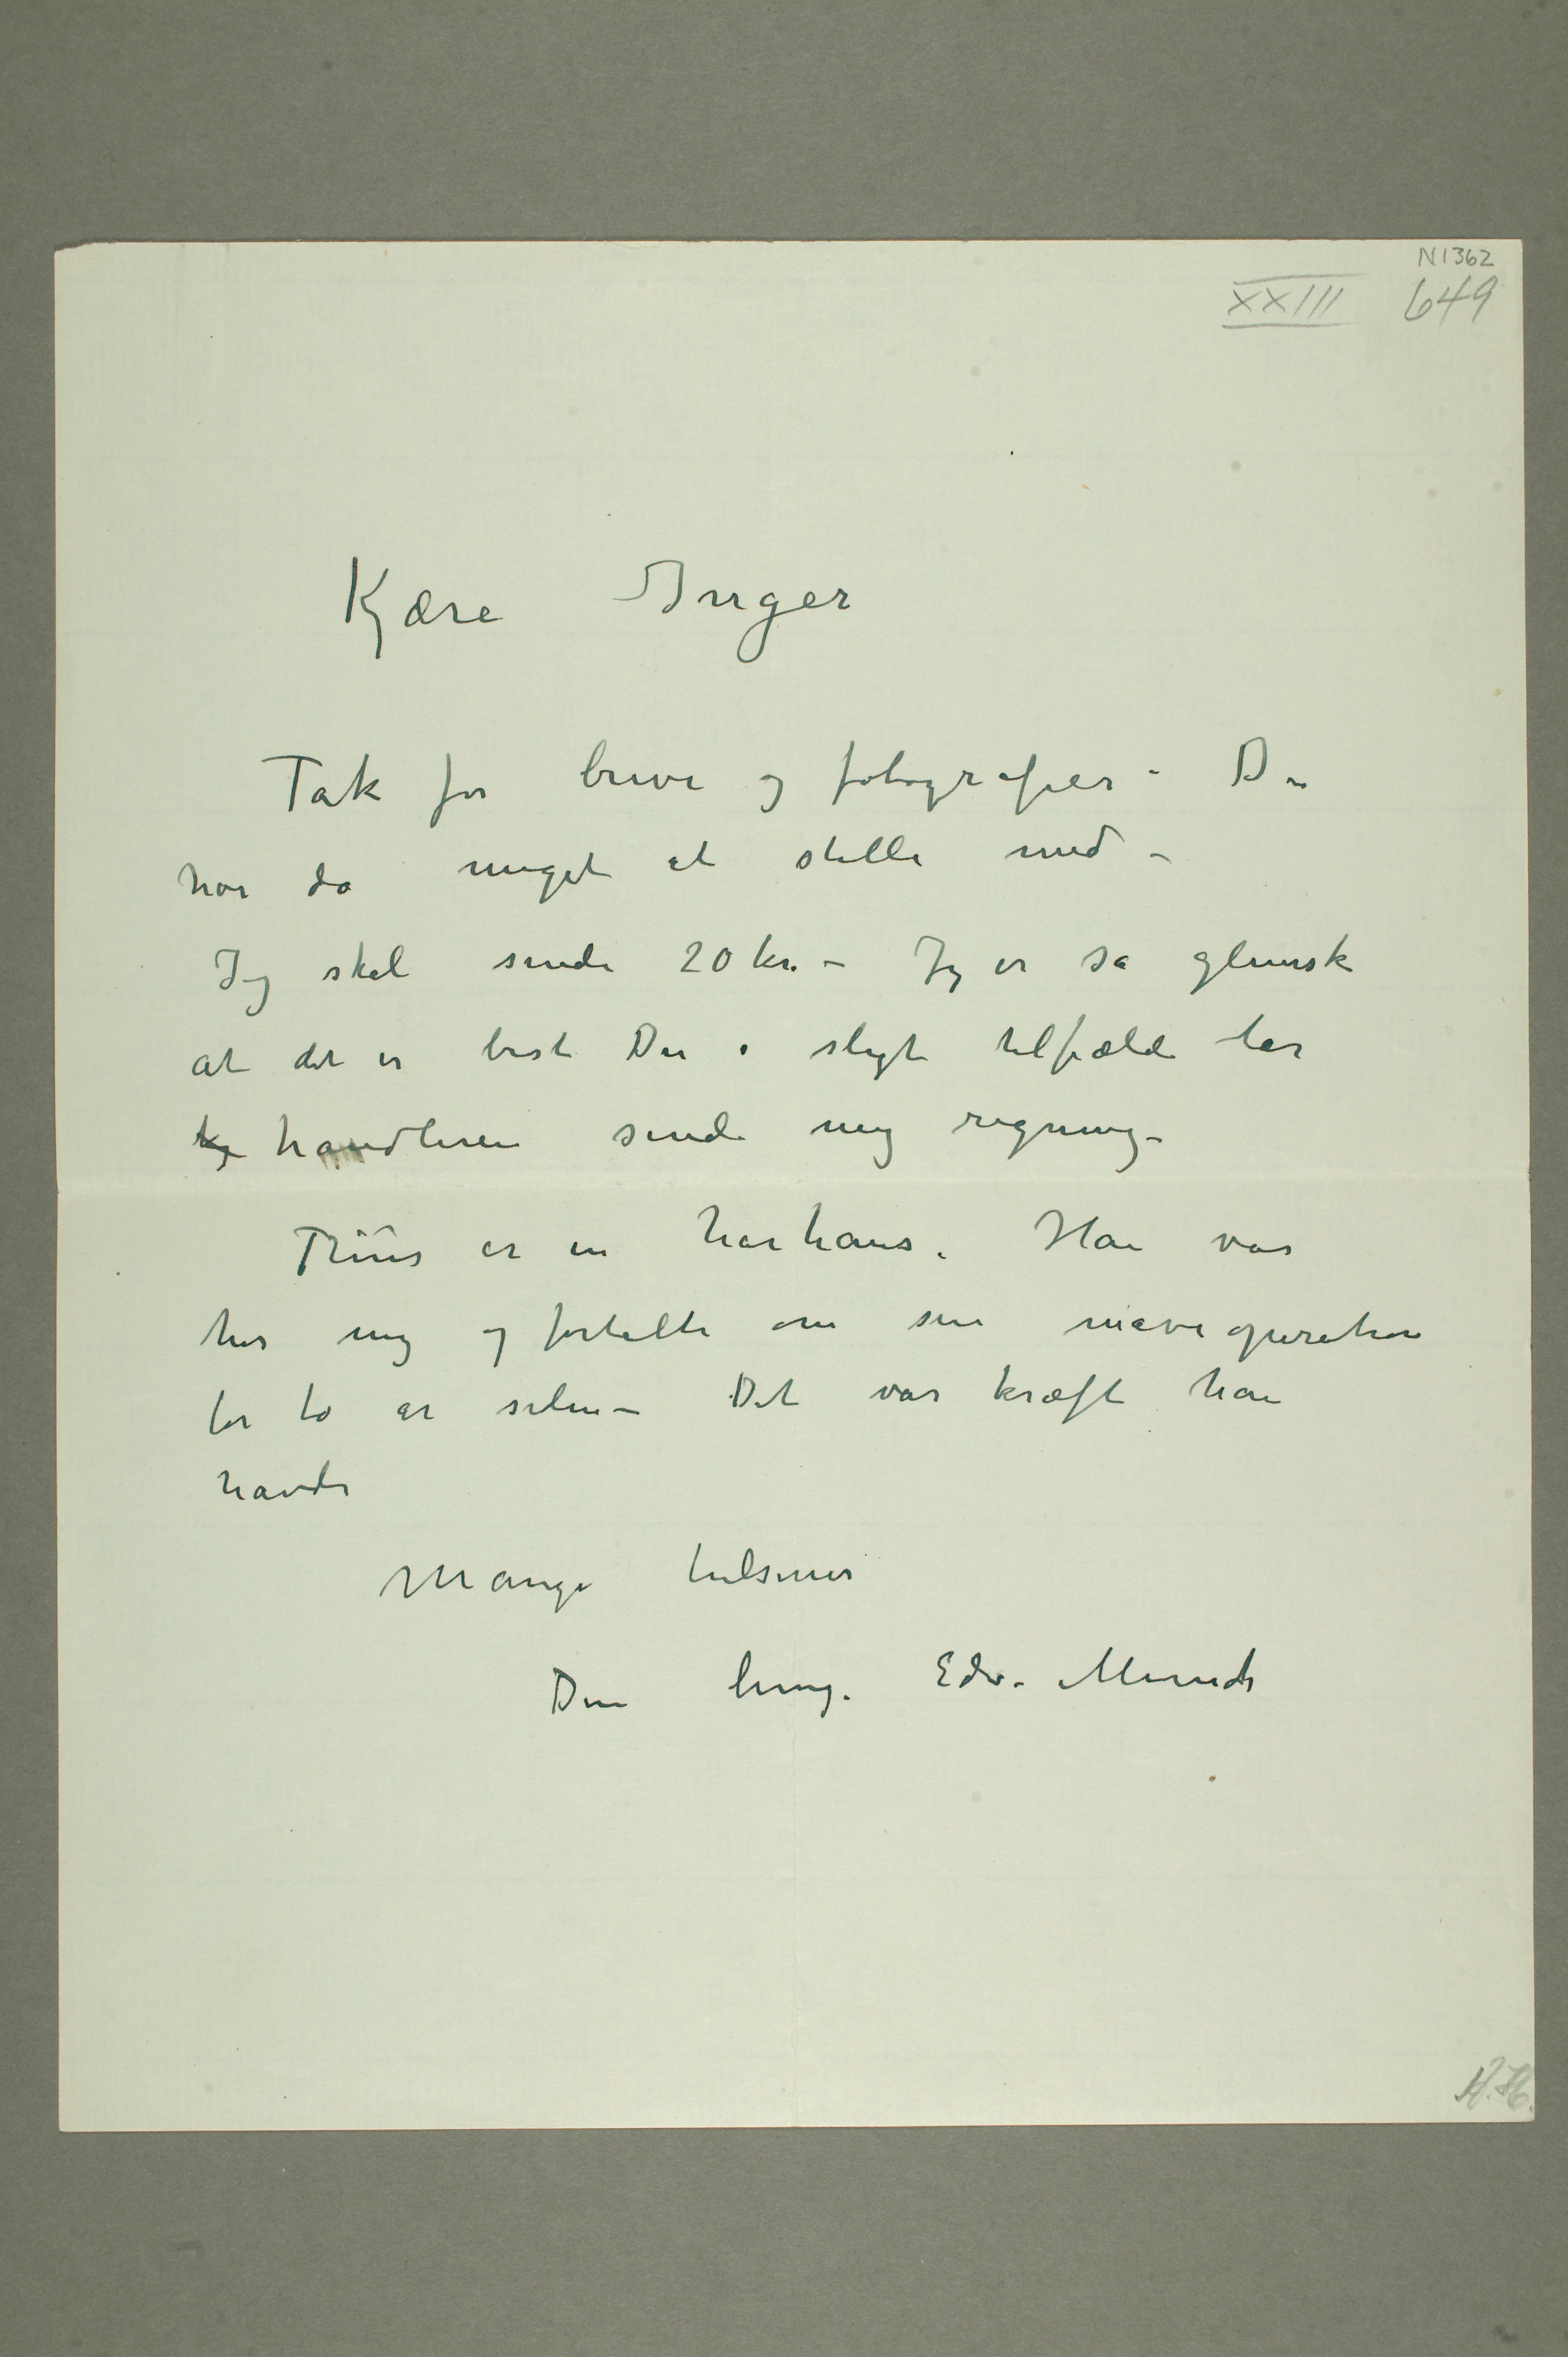 N1362
XXIII 649
Kjære Inger
Tak for breve og fotografier – Du
har da meget at stelle med –
Jeg skal sende 20 kr. – Jeg er så glemsk
at det er best Du i sligt tilfælde lar
handleren sende mig regning –
Thiis er en Han var
hos mig og fortalte om sin maveoperation
for to år siden – Det var kræft han
havde
Mange hilsener
Din heng. Edv. Munch